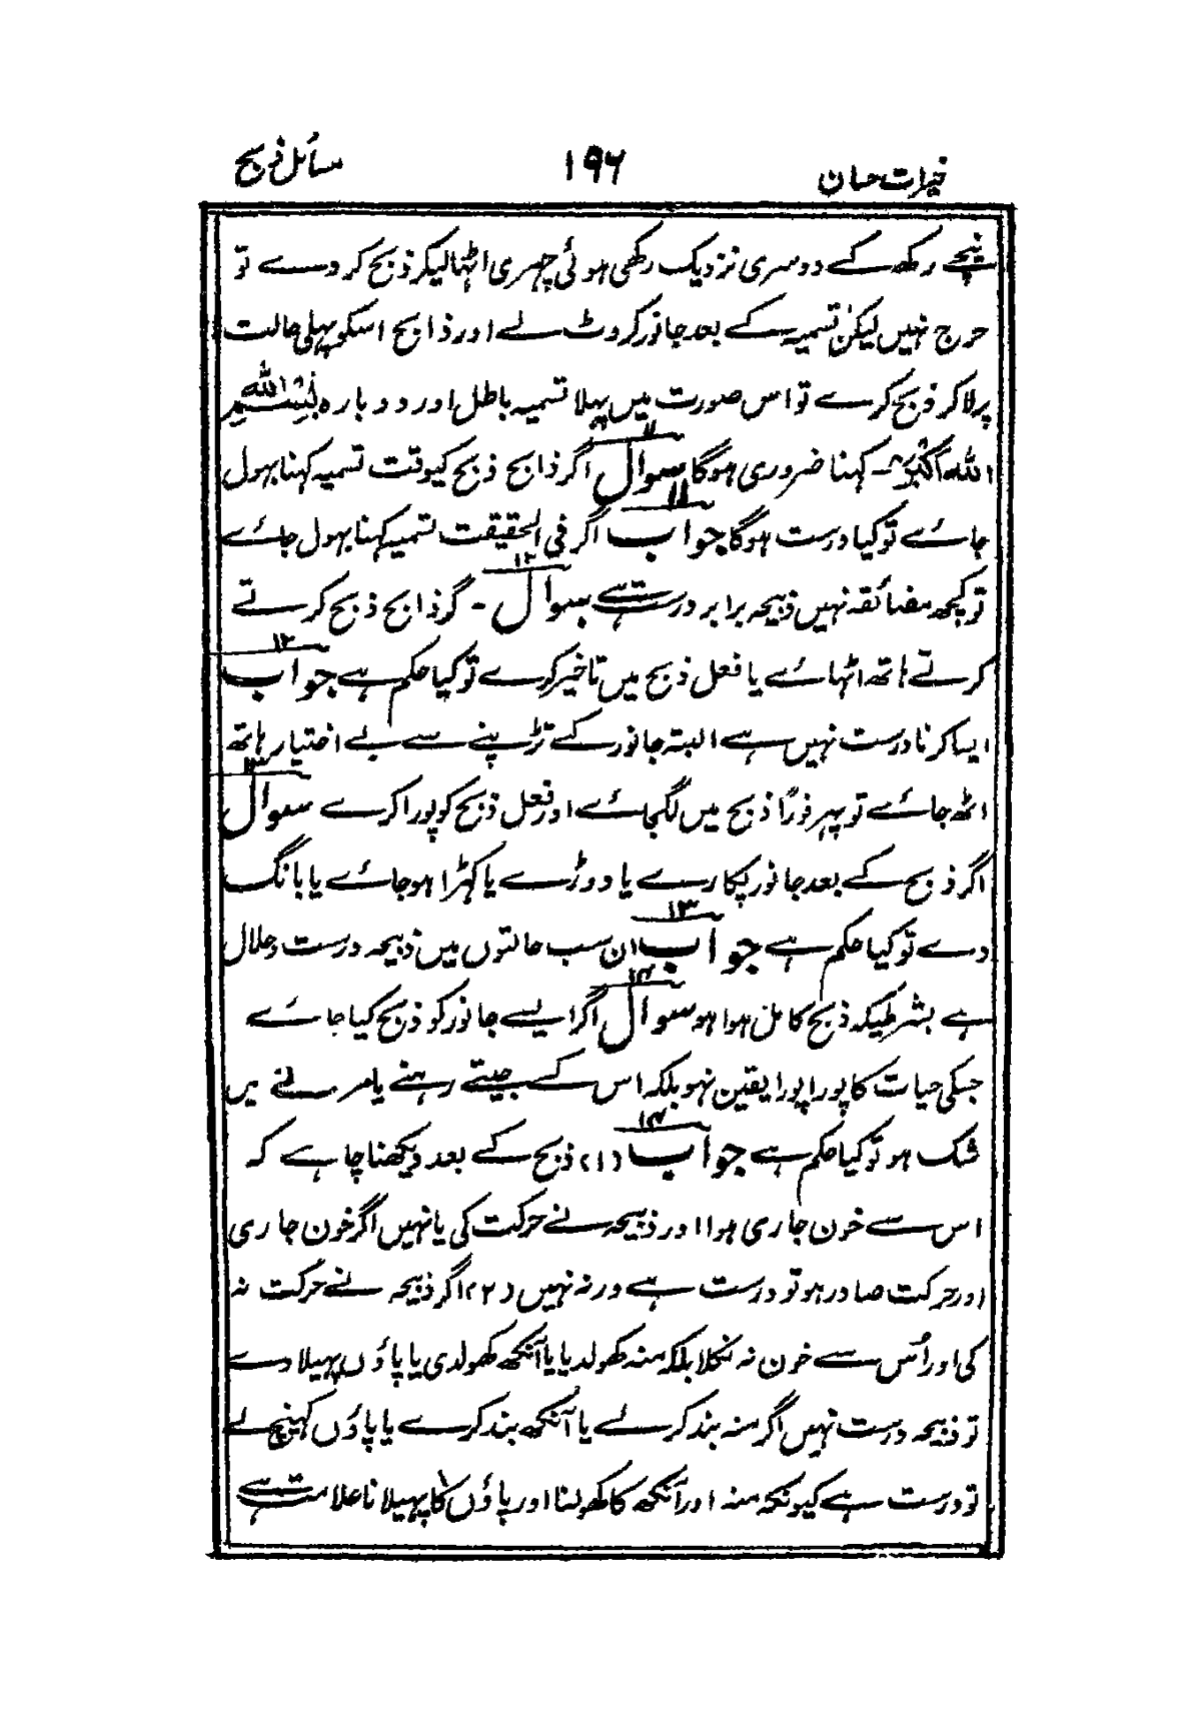 خیرات حسان ۱۹۶ مسائل ذبح
نیچے رکھ کے دوسری نزدیک رکھی ہوئی چہری اٹہا لیکر ذبح کر دے تو
حرج نہیں لیکن تسمیہ کے بعد جانور کروٹ لے اور ذابح اسکو پہلی حالت
پر لاکر ذبح کرے تو اس صورت میں پہلا تسمیہ باطل اور دوبارہ بِسْمِ اللہِ
اللہ اکبر ۔ کہنا ضروری ہوگا سوال ۱۱ اگر ذابح ذبح کیوقت تسمیہ کہنا بہول
جائے تو کیا درست ہوگا جواب ۱۱ اگر فی الحقیقت تسمیہ کہنا بہول جائے
تو کچھ مضائقہ نہیں ذبیحہ برابر درست ہے سوال ۱۲ ۔ گر ذابح ذبح کرتے
کرتے ہاتھ اٹہائے یا فعل ذبح میں تاخیر کرے تو کیا حکم ہے جواب ۱۲
ایسا کرنا درست نہیں ہے البتہ جانور کے تڑپنے سے بے اختیار ہاتھ
اٹھ جائے تو پہر فورًا ذبح میں لگجائے اور فعل ذبح کو پورا کرے سوال ۱۳
اگر ذبح کے بعد جانور پکارے یا دوڑے یا کہڑا ہوجائے یا بانگ
دے تو کیا حکم ہے جواب ۱۳ ان سب حالتوں میں ذبیحہ درست و حلال
ہے بشرطیکہ ذبح کامل ہوا ہو سوال ۱۴ اگر ایسے جانور کو ذبح کیا جائے
جسکی حیات کا پورا پورا یقین نہو بلکہ اس کے جیتے رہنے یا مرنے میں
شک ہو تو کیا حکم ہے جواب ۱۴ (۱) ذبح کے بعد دیکھنا چاہے کہ
اس سے خون جاری ہوا اور ذبیحہ نے حرکت کی یا نہیں اگر خون جاری
اور حرکت صادر ہو تو درست ہے ورنہ نہیں (۲) اگر ذبیحہ نے حرکت نہ
کی اور اُس سے خون نہ نکلا بلکہ منہ کھولدیا یا آنکھ کھولدی یا پاؤں پہیلا دے
تو ذبیحہ درست نہیں اگر منہ بند کرلے یا آنکھ بند کرے یا پاؤں کہینچ لے
تو درست ہے کیونکہ منہ اور آنکھ کا کھولنا اور پاؤں کا پہیلانا علامت ہے